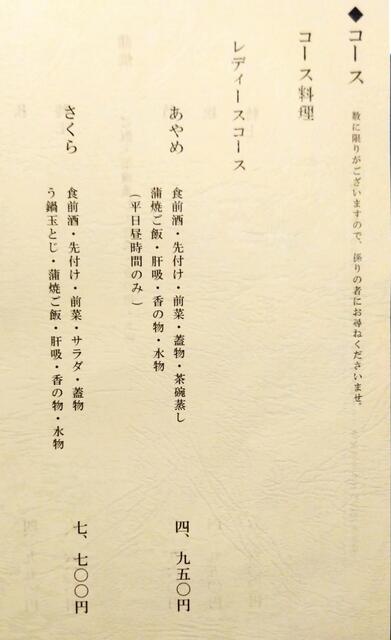 ◆コース
数に限りがございますので、係りの者にお尋ねくださいませ。
コース料理
レディースコース
あやめ
食前酒・先付け・前菜・蓋物・茶碗蒸し
蒲焼ご飯・肝吸・香の物・水物
(平日昼時間のみ)
四、九五〇円
さくら
食前酒・先付け・前菜・サラダ・蓋物
う鍋玉とじ・蒲焼ご飯・肝吸・香の物・水物
七、七〇〇円